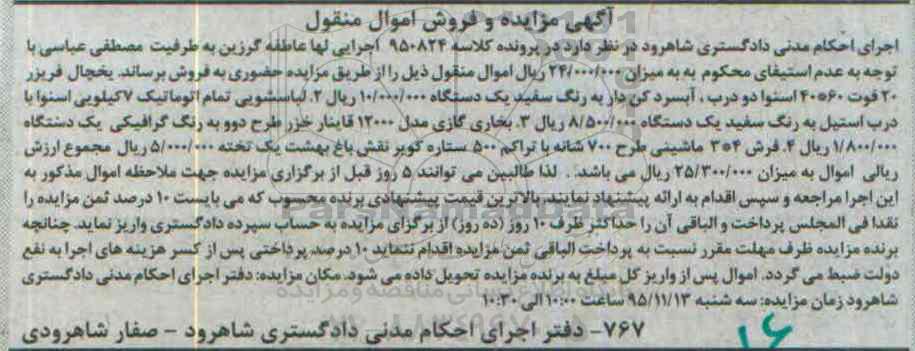 آگهی مزایده و فروش اموال منقول
اجرای احکام مدنی دادگستری شاهرود در نظر دارد در پرونده کلاسه ۹۵۰۸۲۴ اجرایی لها عاطفه گرزین به طرفیت مصطفی عباسی با
توجه به عدم استیفای محکوم به به میزان ۲۴/۰۰۰/۰۰۰ ریال اموال منقول ذیل را از طریق مزایده حضوری به فروش برساند. یخچال فریزر
۲۰ فوت ۶۰*۴۰ اسنوا دو درب ، آبسرد کن دار به رنگ سفید یک دستگاه ۱۰/۰۰۰/۰۰۰ ریال ۲. لباسشویی تمام اتوماتیک ۷کیلویی اسنوا با
درب استیل به رنگ سفید یک دستگاه ۸/۵۰۰/۰۰۰ ریال ۳. بخاری گازی مدل ۱۲۰۰۰ قاینار خزر طرح دوو به رنگ گرافیکی یک دستگاه
۱/۸۰۰/۰۰۰ ریال ۴. فرش ۴*۳ ماشینی طرح ۷۰۰ شانه با تراکم ۵۰۰ ستاره کویر نقش باغ بهشت یک تخته ۵/۰۰۰/۰۰۰ ریال مجموع ارزش
ریالی اموال به میزان ۲۵/۳۰۰/۰۰۰ ریال می باشد. . لذا طالبین می توانند ۵ روز قبل از برگزاری مزایده جهت ملاحظه اموال مذکور به
این اجرا مراجعه و سپس اقدام به ارائه پیشنهاد نمایند. بالاترین قیمت پیشنهادی برنده محسوب که می بایست ۱۰ درصد ثمن مزایده را
نقدا فی المجلس پرداخت و الباقی آن را حداکثر ظرف ۱۰ روز (ده روز) از برگزای مزایده به حساب سپرده دادگستری واریز نماید. چنانچه
برنده مزایده ظرف مهلت مقرر نسبت به پرداخت الباقی ثمن مزایده اقدام ننماید ۱۰ درصد پرداختی پس از کسر هزینه های اجرا به نفع
دولت ضبط می گردد. اموال پس از واریز کل مبلغ به برنده مزایده تحویل داده می شود. مکان مزایده: دفتر اجرای احکام مدنی دادگستری
شاهرود زمان مزایده: سه شنبه ۹۵/۱۱/۱۳ ساعت ۱۰:۰۰ الی ۱۰:۳۰
۷۶۷- دفتر اجرای احکام مدنی دادگستری شاهرود - صفار شاهرودی
۱۶